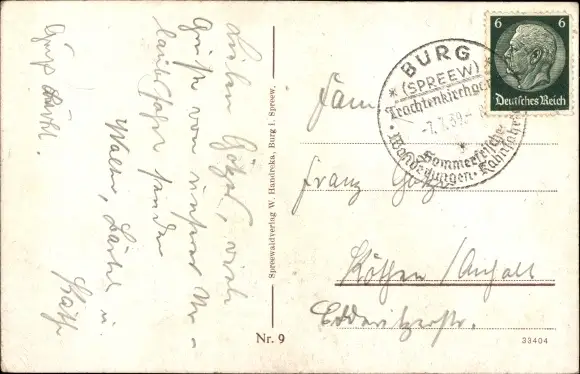 Lieben Götzel, viele
Grüße von unserer Ur-
laubsfahrt senden
Walter, Bärbel u.
Käthe
Gruß
Spreewaldverlag W. Handreka, Burg i. Spreew.
Nr. 9
6 6
Deutsches Reich
BURG
(SPREEW)
Trachtenkirchgang
-7.7.39.-
Sommerfrische
Wanderungen · Kahnfahrten
Fam
Franz Götze
Köthen/Anhalt
Edderitzerstr.
33404